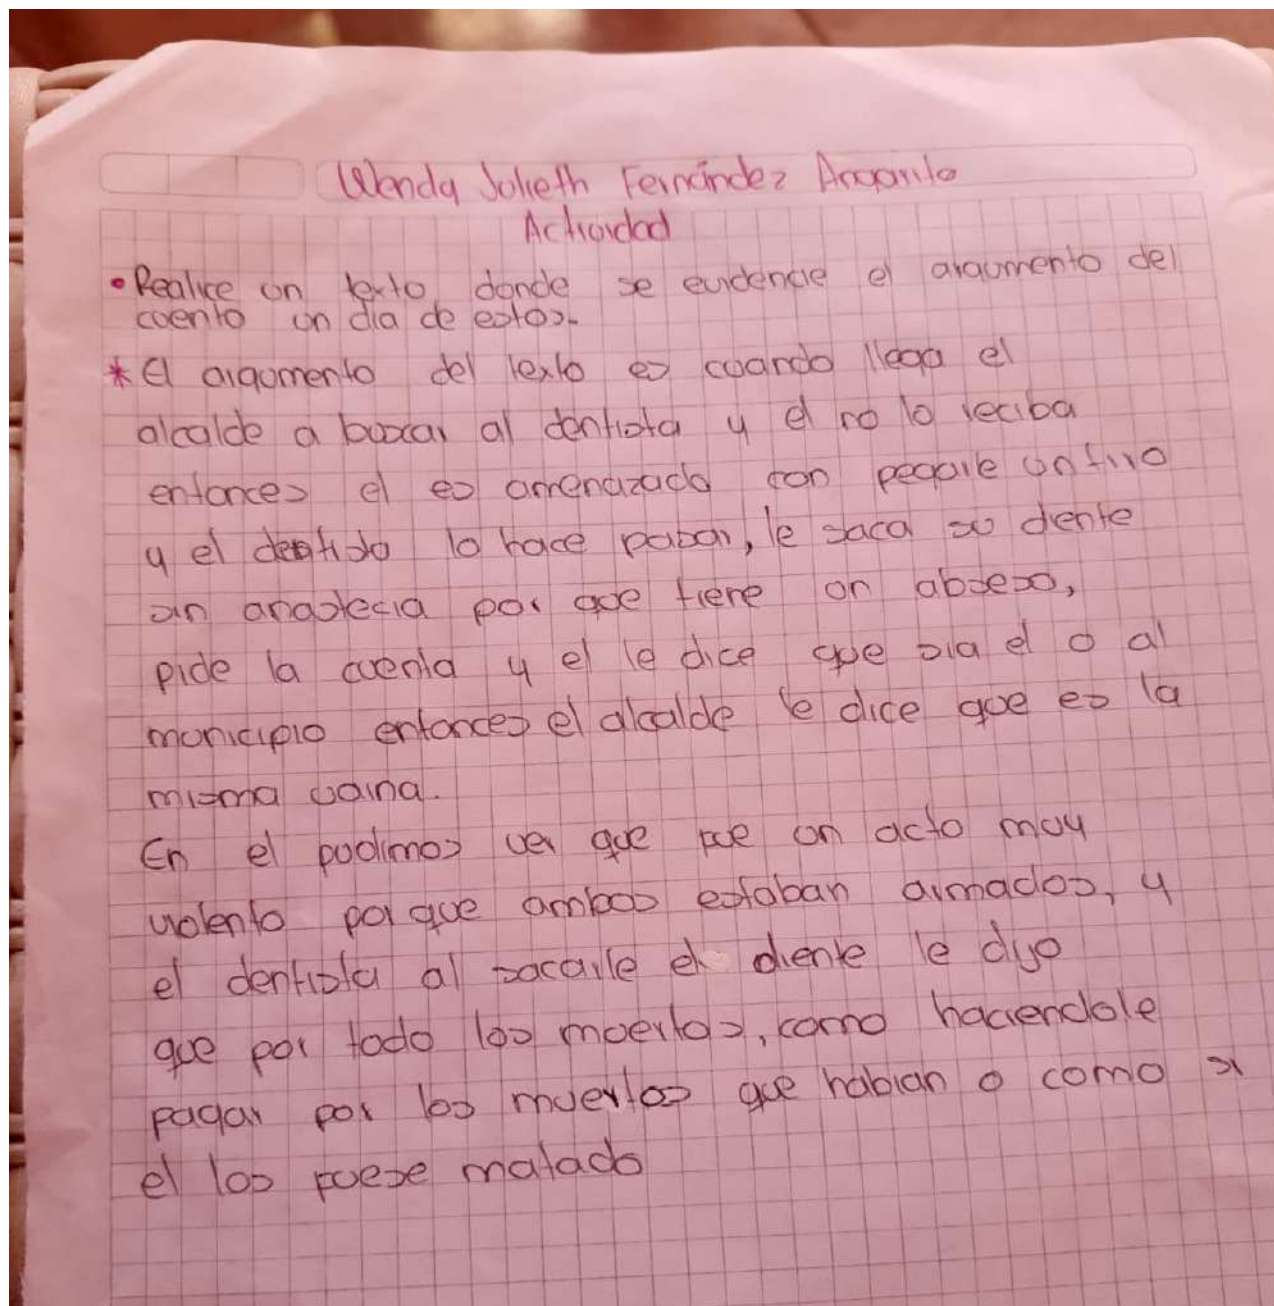 Wenda Julieth Fernández Angarita
Actividad
• Realice un texto donde se evidencie el argumento del
cuento un dia de estos.
* El argumento del texto es cuando llega el
alcalde a buscar al dentista y el no lo reciba
entonces el es amenazado con pegarle un tiro
y el dentista lo hace pasar, le saca su diente
sin anaslecia por que tiene un abseso,
pide la cuenta y el le dice que sia el o al
municipio entonces el alcalde le dice que es la
misma vaina.
En el pudimos ver que fue un acto muy
violento porque ambos estaban armados, y
el dentista al sacarle el diente le dijo
que por todo los muertos, como haciendole
pagar por los muertos que habian o como si
el los fuese matado